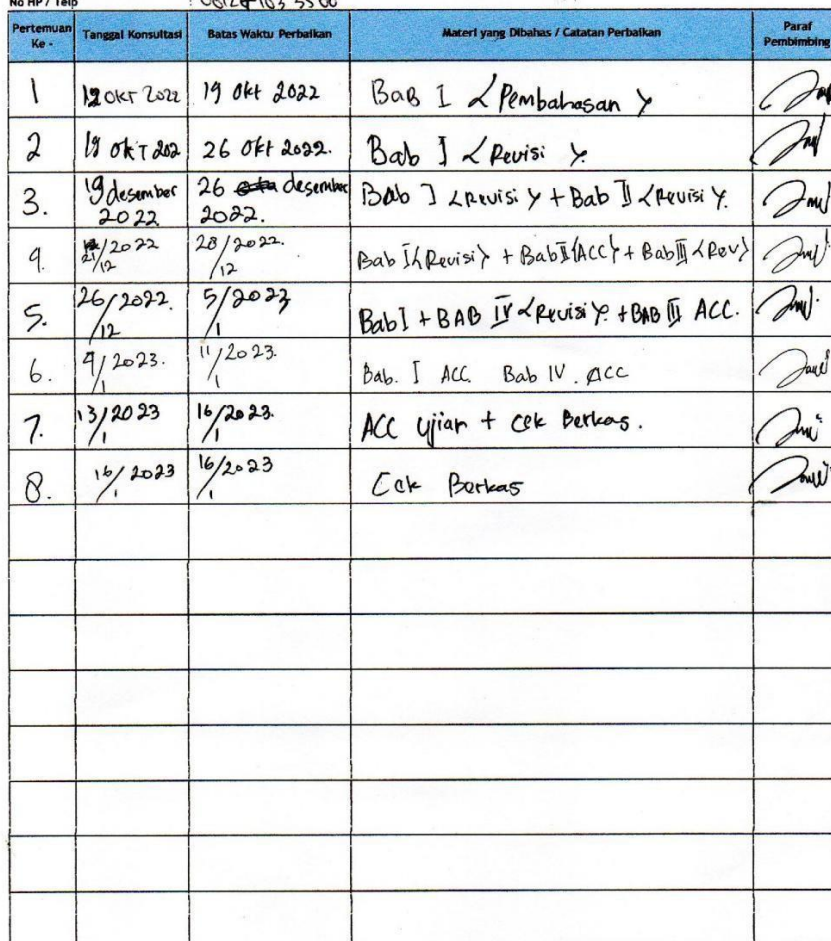 No HP / Telp
Pertemuan Ke - Tanggal Konsultasi Batas Waktu Perbaikan Materi yang Dibahas / Catatan Perbaikan Paraf Pembimbing
1 12 OKT 2022 19 Okt 2022 Bab I <Pembahasan>
2 19 OKT 202 26 Okt 2022. Bab I <Revisi>
3. 19 desember 2022 26 desember 2022. Bab I <Revisi> + Bab II <Revisi>.
4. 21/12/2022 28/12/2022. Bab I <Revisi> + Bab II <ACC> + Bab III <Rev>
5. 26/12/2022. 5/1/2023 Bab I + BAB IV <Revisi>. + BAB III ACC.
6. 9/1/2023. 11/1/2023. Bab. I ACC. Bab IV. ACC
7. 13/1/2023 16/1/2023. ACC Ujian + Cek Berkas.
8. 16/1/2023 16/1/2023 Cek Berkas